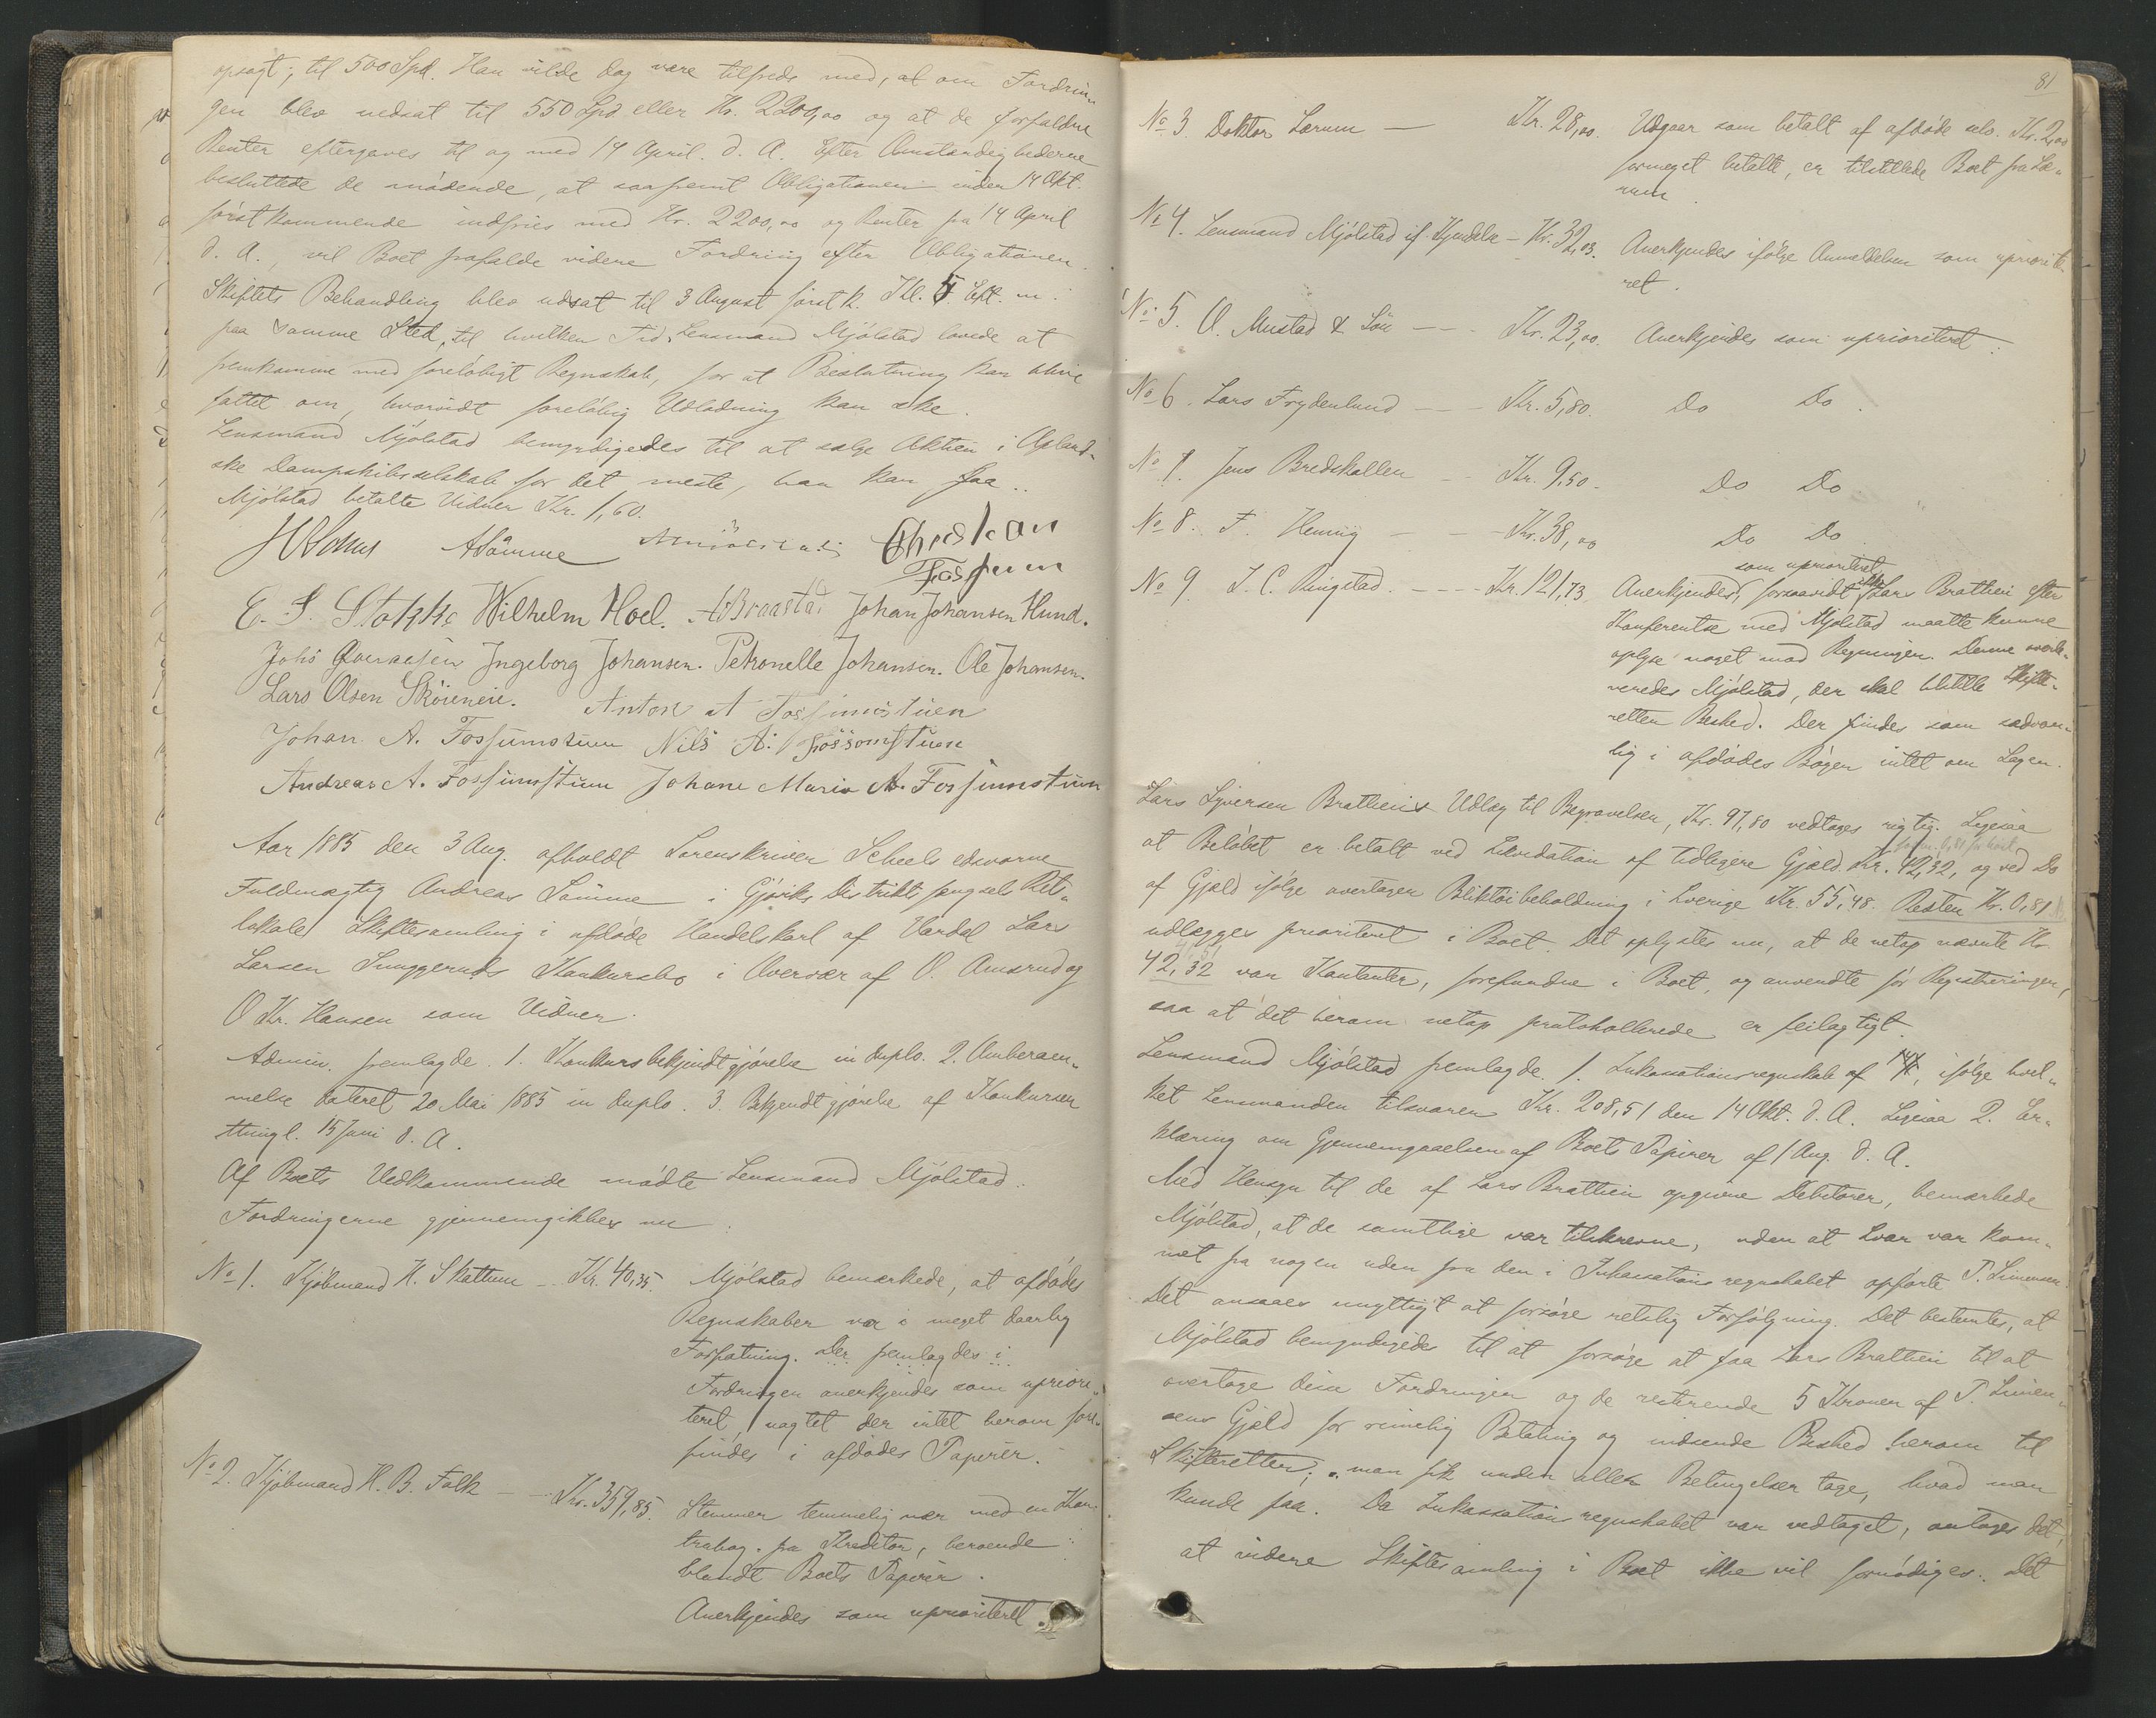 opsagt, til 500 Spd. Han vilde dog være tilfreds med, at om Fordrin-
gen blev nedsat til 550 Spd. eller Kr. 2200,00 og at de forfaldne
Renter eftergaves til og med 14 April d. A. Efter Omstændighederne
besluttede de mødende, at saafremt Obligationen inden 14 Okt.
førstkommende indfries med Kr. 2200,00 og Renter fra 14 April
d. A., vil Boet frafalde videre Fordring efter Obligationen.
Skiftets Behandling blev udsat til 3 August førstk. Kl. 5 Eft. m.
paa samme Sted, til hvilken Tid Lensmand Mjølstad lovede at
fremkomme med foreløbigt Regnskab, for at Beslutning kan blive
fattet om, hvorvidt foreløbig Udlodning kan ske.
Lensmand Mjølstad bemyndigedes til at sælge Aktien i Opland-
ske Dampskibsselskab for det meste, han kan faa.
Mjølstad betalte Vidner Kr. 1,60.
ASømme Christian
Fossum
E. S. Stokke Wilhelm Hoel. ABraastad Johan Johansen Hund.
Johs Ingeborg Johansen. Petronelle Johansen. Ole Johansen.
Lars Olsen Skøieneie. Anton A Fossumstuen
Johan A. Fossumstuen Nils A. Fossomstuen
Andreas A. Fossumstuen Johane Marie A. Fossumstuen
Aar 1885 den 3 Aug. afholdt Sorenskriver Scheels edsvorne
Fuldmægtig Andreas Sømme i Gjøviks Distriktsfængsels Ret-
lokale Skiftesamling i afdøde Handelskarl af Vardal Lars
Larsen Snuggeruds Konkursbo i Overvær af O. Amsrud og
O Kr. Hansen som Vidner.
Admin. fremlagde 1. Konkursbekjendtgjørelse in duplo. 2. Omberam-
melse dateret 20 Mai 1885 in duplo. 3. Bekjendtgjørelse af Konkursen
thingl. 15 Juni d. A.
Af Boets Vedkommende mødte Lensmand Mjølstad.
Fordringerne gjennemgikkes nu.
No 1. Kjøbmand H. Skattum - Kr. 40,35. Mjølstad bemærkede, at afdødes
Regnskaber var i meget daarlig
Forfatning. Der fremlagdes i
Fordringen anerkjendes som upriori-
teret, uagtet der intet herom fore-
findes i afdødes Papirer.
No 2. Kjøbmand H. B. Falk - Kr. 359,85. Stemmer temmelig nær med en Kon-
trabog fra Kreditor, beroende
blandt Boets Papirer.
Anerkjendes som uprioriteret.
81
No 3. Doktor Lærum - Kr. 28,00. Udgaar som betalt af afdøde selv. Kr. 2,00
formeget betalte, er tilstillede Boet fra Læ-
rum.
No 4. Lensmand Mjølstad if. Kjendelse - Kr. 32,03. Anerkjendes ifølge Anmeldelsen som upriorite-
ret.
No 5. O. Mustad & Søn - Kr. 23,00. Anerkjendes som uprioriteret.
No 6. Lars Frydenlund - Kr. 5,80. Do Do.
No 7. Jens Bredskallen - Kr. 9,50 - Do Do
No 8. F. Hennig - Kr. 38,00 Do Do.
som uprioriteret,
No 9 J. C. Ringstad. - Kr. 121,73 Anerkjendes, forsaavidt ikke Lars Brattlien efter
Konferentse med Mjølstad maatte kunne
oplyse noget mod Regningen. Denne overle-
veredes Mjølstad, der skal tilstille Skifte-
retten Besked. Der findes som sædvan-
lig i afdødes Bøger intet om Sagen.
Lars Syversen Brattliens Udlæg til Begravelsen, Kr. 97,80 vedtages rigtig. Ligesaa
at Beløbet er betalt ved Likvidation af tidligere Gjæld Kr. 42,32, og ved Do
af Gjæld ifølge overtagen Bliktøibeholdning i Sverige Kr. 55,48. Resten Kr. 0,81
udlægges prioriteret i Boet. Det oplystes nu, at de netop nævnte Kr.
42,32 var Kontanter, forefundne i Boet, og anvendte før Registreringen,
saa at det herom netop protokollerede er feilagtigt.
Lensmand Mjølstad fremlagde 1. Inkassationsregnskab af , ifølge hvil-
ket Lensmanden tilsvarer Kr. 208,51 den 14 Okt. d. A. Ligesaa 2. Er-
klæring om Gjennemgaaelsen af Boets Papirer af 1 Aug. d. A.
Med Hensyn til de af Lars Brattlien opgivne Debitorer, bemærkede
Mjølstad, at de samtlige var tilskrevne, uden at Svar var kom-
met fra nogen uden fra den i Inkassationsregnskabet opførte P. Simensen.
Det ansaaes unyttigt at forsøge retslig Forfølgning. Det bestemtes, at
Mjølstad bemyndigedes til at forsøge at faa Lars Brattlien til at
overtage disse Fordringer og de resterende 5 Kroner af P. Simen-
sens Gjæld for rimelig Betaling og indsende Besked herom til
Skifteretten; man fik under alle Betingelser tage, hvad man
kunde faa. Da Inkassationsregnskabet var vedtaget, antages det,
at videre Skiftesamling i Boet ikke vil fornødiges. Det